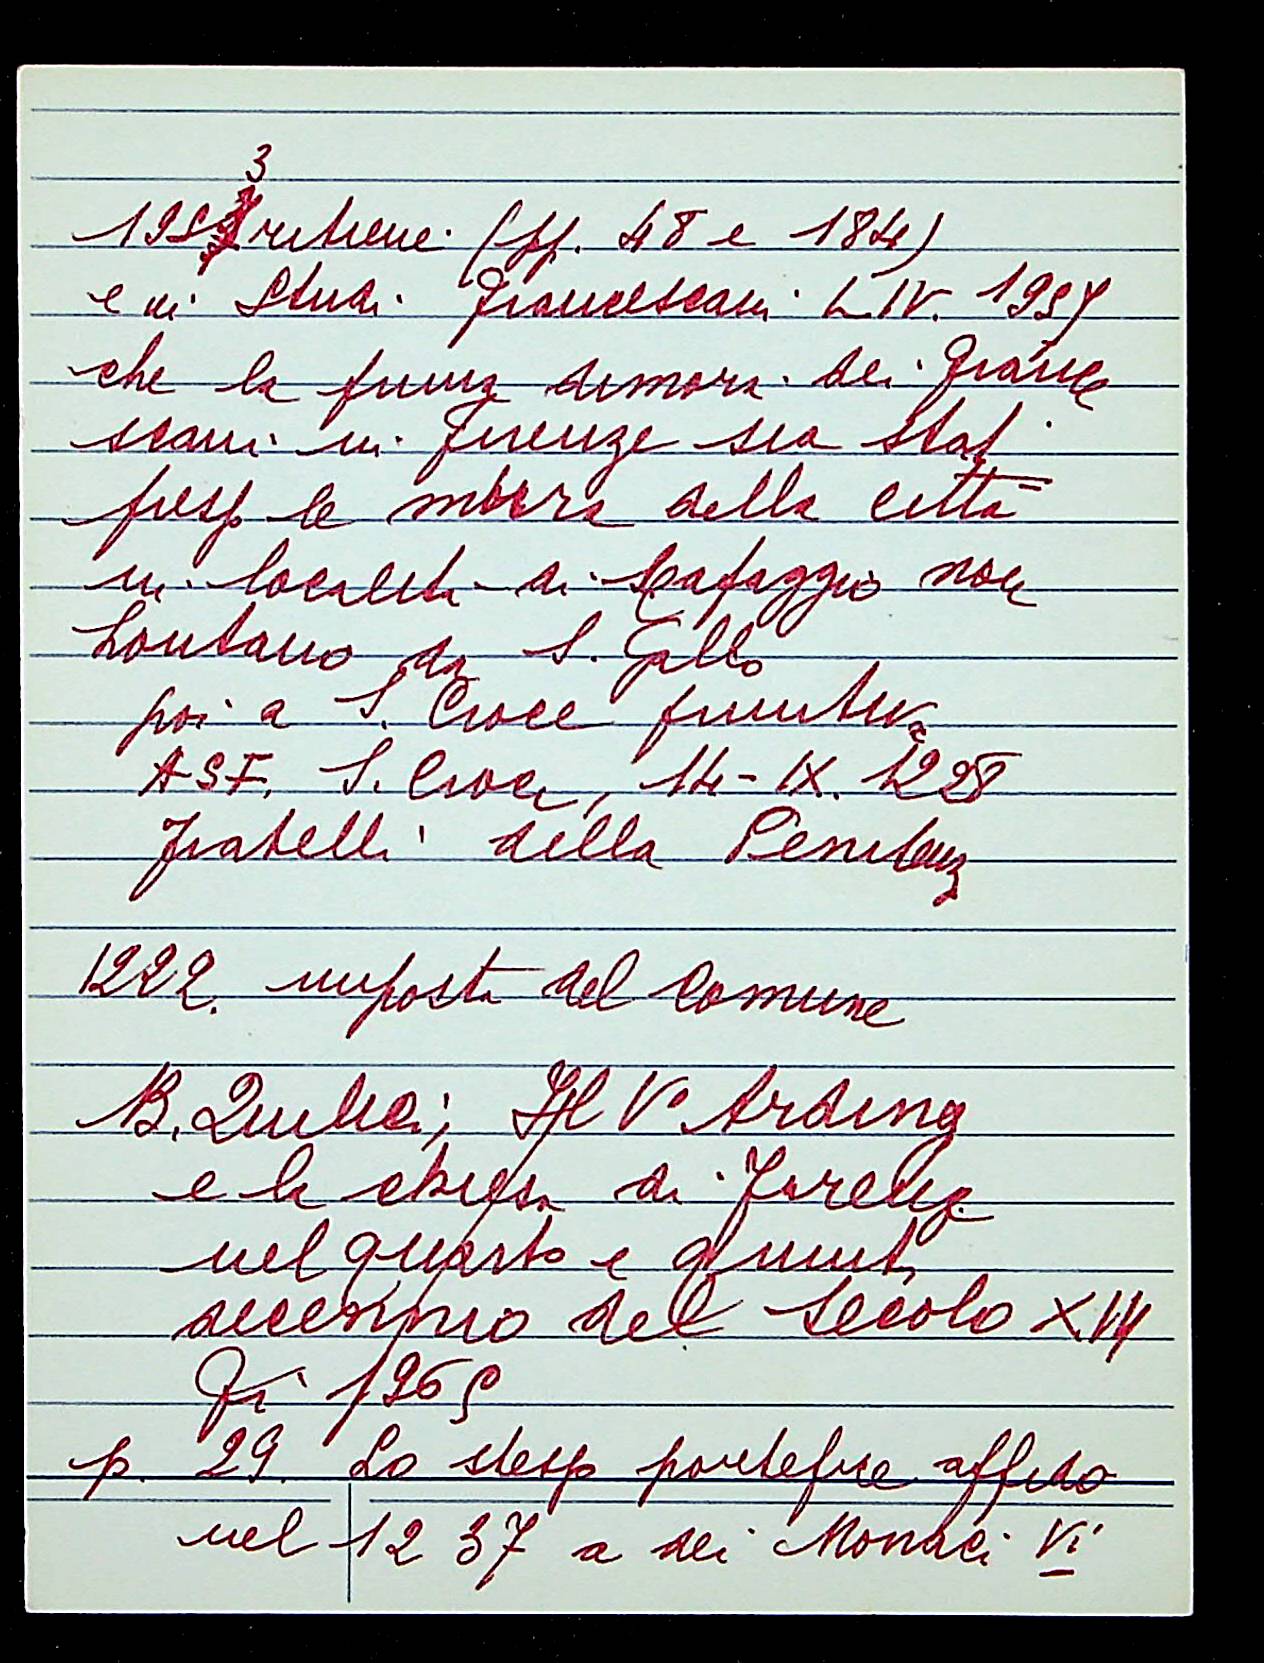 3
195 ritiene (pp. 48 e 184)
e in Studi Francescani LIV. 1957
che la prima dimora dei France
scani in Firenze sia stat
presso le mura della città
in località di Cafaggio non
Lontano da S. Gallo
poi a S. Croce
ASF. S. Croce, 14-IX. 1228
Fratelli della Penitenz
1222. imposta del Comune
B. Quilici, Il Vº Arding
e la chiesa di Firenz
nel quarto e quint
decennio del secolo XIII
Fi 1965
p. 29. Lo stesso pontefice affidò
nel 1237 a dei Monaci Vi